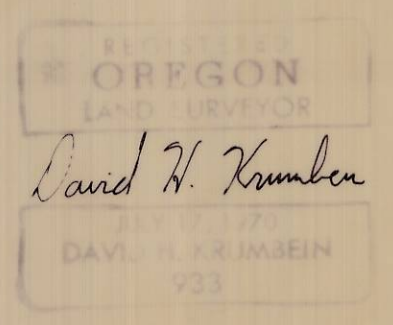 REGISTERED
OREGON
LAND SURVEYOR
David H. Krumbein
JULY 17, 1970
DAVID H. KRUMBEIN
933